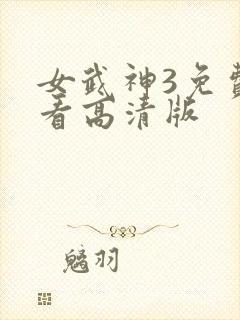 女武神3免費
看高清版
魑羽